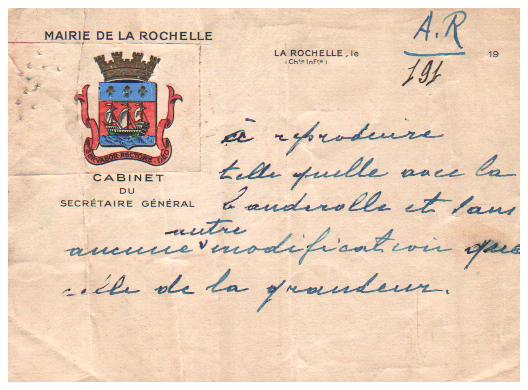 A.R
MAIRIE DE LA ROCHELLE
LA ROCHELLE, le 19
(Chte Infre)
191
SERVABOR RECTORE DEO
CABINET
DU
SECRÉTAIRE GÉNÉRAL
à reproduire
telle quelle avec la
banderolle et sans
autre
aucune modification que
celle de la grandeur.